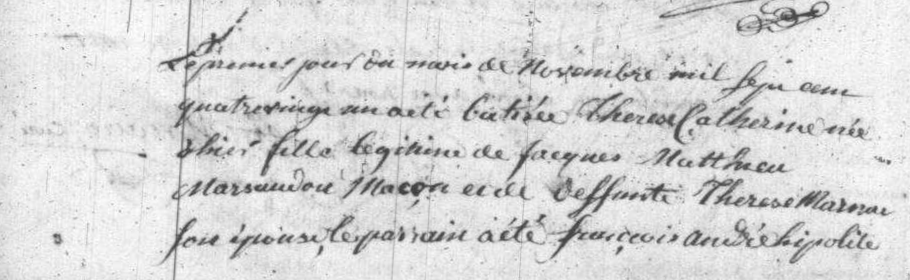 Le premier jour du mois de Novembre mil sept cent
quatrevingt un a eté batisée Therese Catherine née
d'hier fille legitime de Jacques Matthieu
Marsaudou Maçon et de deffunte Therese
son épouse, le parrain a été françois andré hipolite